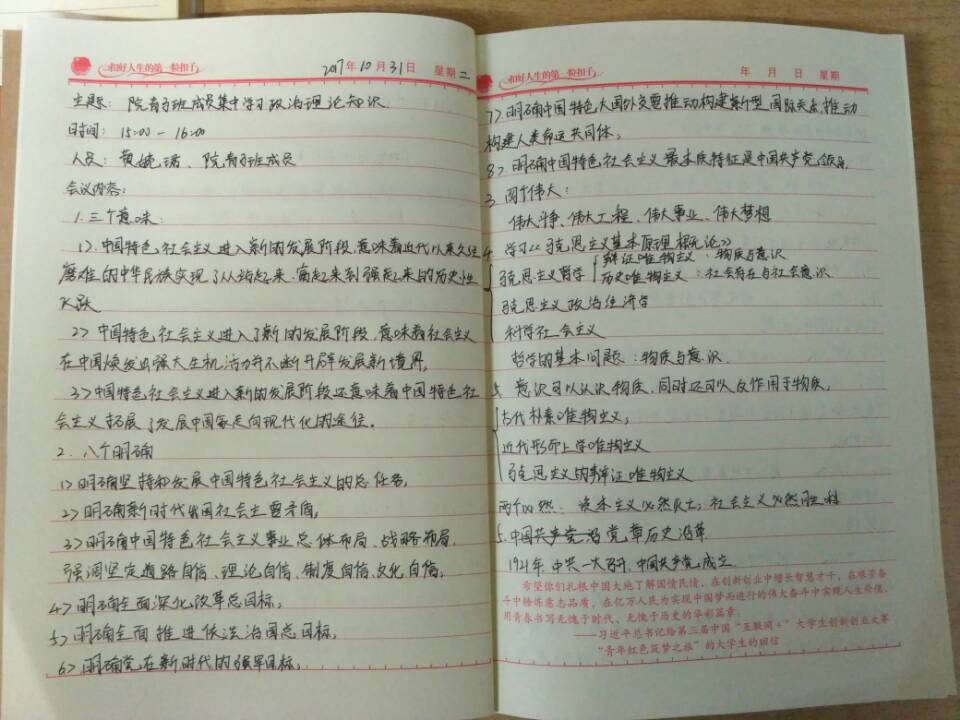 扣好人生的第一粒扣子
2017年10月31日 星期二
主题: 院青马班成员集中学习政治理论知识
时间: 15:00-16:00
人员: 黄媛、院青马班成员
会议内容:
1.三个意味:
1>.中国特色社会主义进入新的发展阶段,意味着近代以来久经
磨难的中华民族实现了从站起来、富起来到强起来的历史性
飞跃
2>中国特色社会主义进入了新的发展阶段,意味着社会主义
在中国焕发出强大生机活力并不断开辟发展新境界。
3>中国特色社会主义进入新的发展阶段还意味着中国特色社
会主义拓展了发展中国家走向现代化的途径。
2.八个明确
1>明确坚持和发展中国特色社会主义的总任务。
2>明确新时代我国社会主要矛盾。
3>明确中国特色社会主义事业总体布局、战略布局。
强调坚定道路自信、理论自信、制度自信、文化自信。
4>明确全面深化改革总目标。
5>明确全面推进依法治国总目标。
6>明确党在新时代的强军目标。
扣好人生的第一粒扣子
年 月 日 星期
7>明确中国特色大国外交要推动构建新型国际关系,推动
构建人类命运共同体。
8>明确中国特色社会主义最本质特征是中国共产党领导
3.四个伟大:
伟大斗争、伟大工程、伟大事业、伟大梦想
4.学习《马克思主义基本原理概论》
辩证唯物主义:物质与意识
马克思主义哲学
历史唯物主义:社会存在与社会意识
马克思主义政治经济学
科学社会主义
哲学的基本问题:物质与意识.
5.意识可以认识物质,同时还可以反作用于物质。
古代朴素唯物主义。
近代形而上学唯物主义
马克思主义的辩证唯物主义
两个必然: 资本主义必然灭亡;社会主义必然胜利
5.中国共产党 党章历史沿革
1921年,中共一大召开,中国共产党成立
希望你们扎根中国大地了解国情民情,在创新创业中增长智慧才干,在艰苦奋
斗中锤炼意志品质,在亿万人民为实现中国梦而进行的伟大奋斗中实现人生价值,
用青春书写无愧于时代、无愧于历史的华彩篇章。
——习近平总书记给第三届中国“互联网+”大学生创新创业大赛
“青年红色筑梦之旅”的大学生的回信